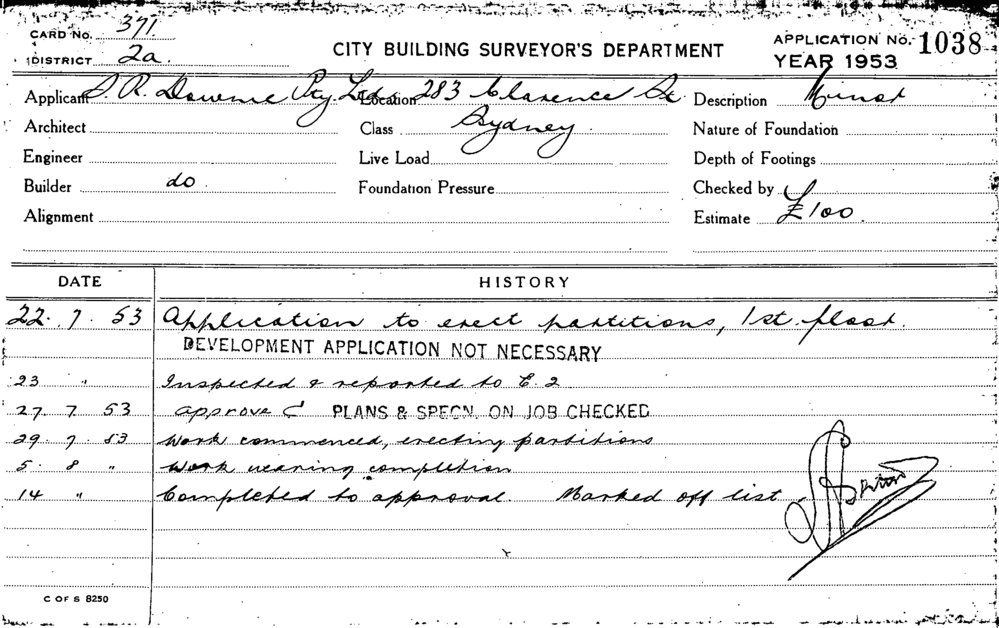 CARD No. 371.
DISTRICT 2a.
CITY BUILDING SURVEYOR'S DEPARTMENT
APPLICATION No. 1038
YEAR 1953
Applicant S. R. Downie Pty. Ltd. Location 283 Clarence St Description Minor
Architect Class Sydney. Nature of Foundation
Engineer Live Load Depth of Footings
Builder do Foundation Pressure Checked by
Alignment Estimate £100.
DATE HISTORY
22. 7 53 Application to erect partitions, 1st. floor.
DEVELOPMENT APPLICATION NOT NECESSARY
23 " Inspected & reported to E. 2
27. 7 53 approve PLANS & SPECN. ON JOB CHECKED
29. 7. 53 Work commenced, erecting partitions
5. 8 " Work nearing completion
14 " Completed to approval. Marked off list
C OF S 8250